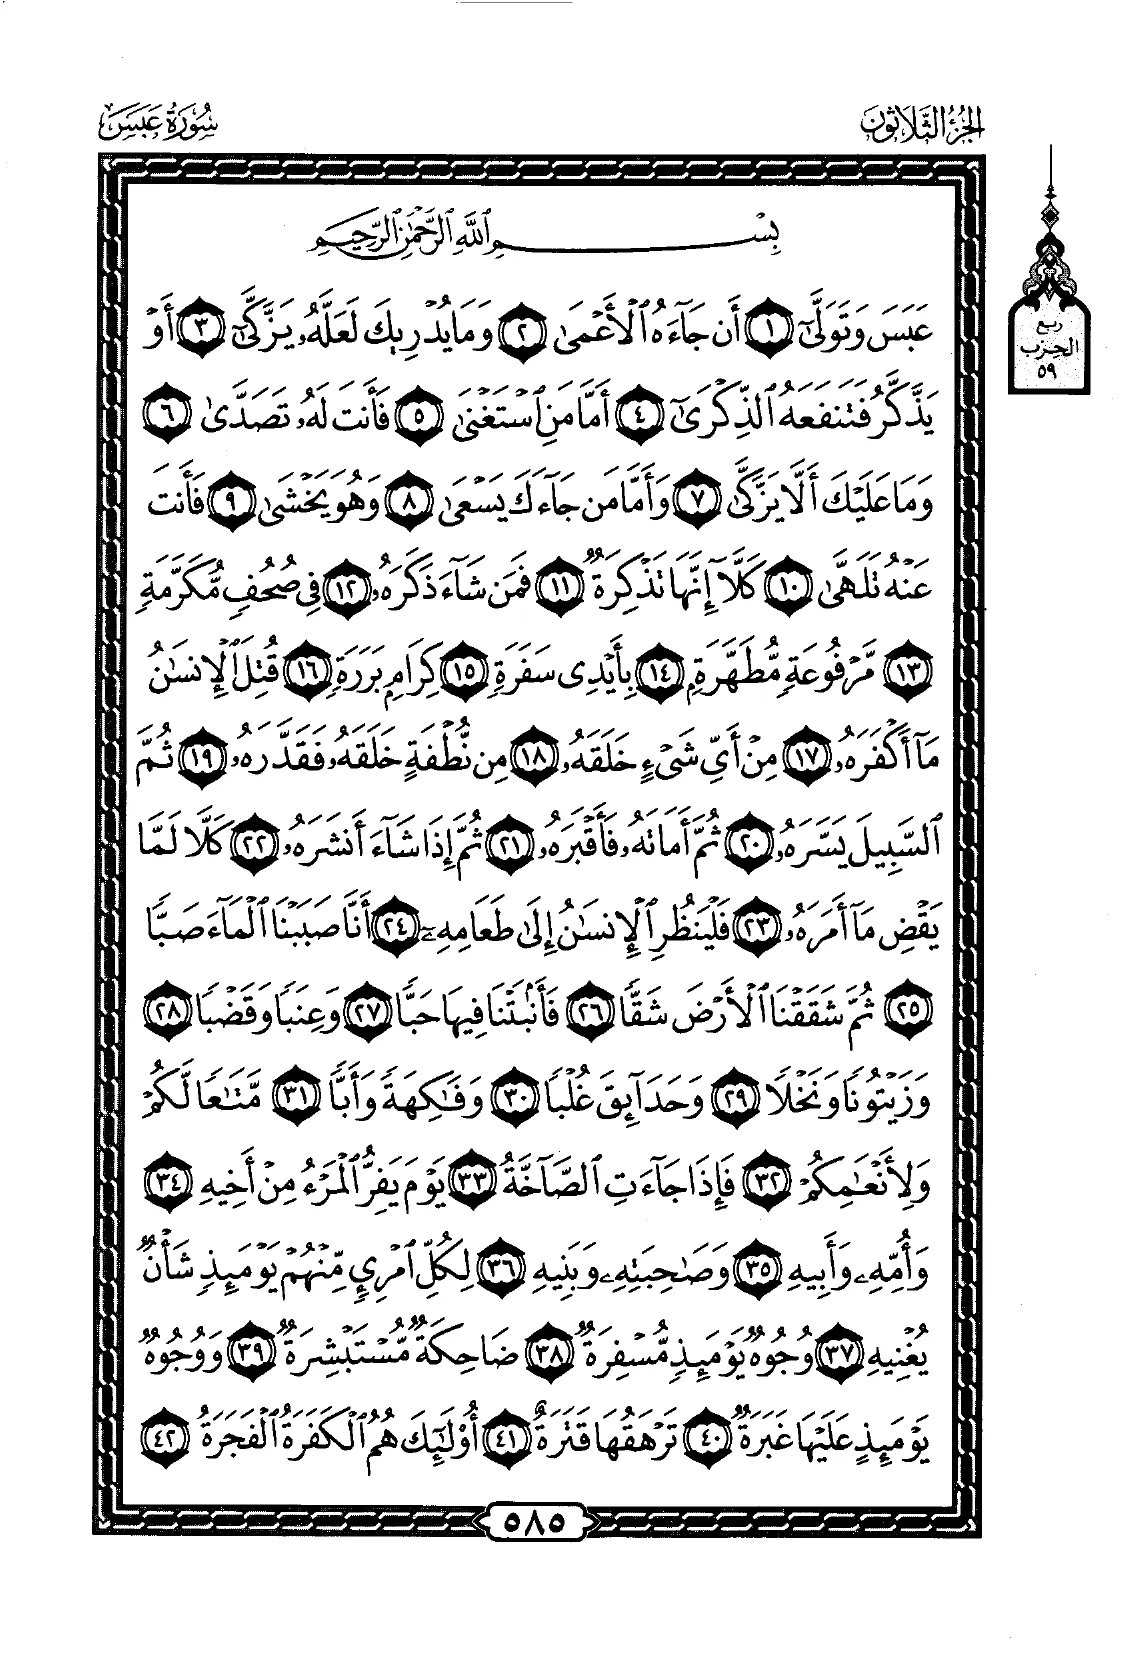 الجزء الثلاثون
سورة عبس
ربع
الحزب
٥٩
بِسْمِ ٱللَّهِ ٱلرَّحْمَٰنِ ٱلرَّحِيمِ
عَبَسَ وَتَوَلَّىٰٓ ١ أَن جَآءَهُ ٱلْأَعْمَىٰ ٢ وَمَا يُدْرِيكَ لَعَلَّهُۥ يَزَّكَّىٰٓ ٣ أَوْ
يَذَّكَّرُ فَتَنفَعَهُ ٱلذِّكْرَىٰٓ ٤ أَمَّا مَنِ ٱسْتَغْنَىٰ ٥ فَأَنتَ لَهُۥ تَصَدَّىٰ ٦
وَمَا عَلَيْكَ أَلَّا يَزَّكَّىٰ ٧ وَأَمَّا مَن جَآءَكَ يَسْعَىٰ ٨ وَهُوَ يَخْشَىٰ ٩ فَأَنتَ
عَنْهُ تَلَهَّىٰ ١٠ كَلَّآ إِنَّهَا تَذْكِرَةٌ ١١ فَمَن شَآءَ ذَكَرَهُۥ ١٢ فِى صُحُفٍ مُّكَرَّمَةٍ
١٣ مَّرْفُوعَةٍ مُّطَهَّرَةٍۭ ١٤ بِأَيْدِى سَفَرَةٍ ١٥ كِرَامٍۭ بَرَرَةٍ ١٦ قُتِلَ ٱلْإِنسَٰنُ
مَآ أَكْفَرَهُۥ ١٧ مِنْ أَىِّ شَىْءٍ خَلَقَهُۥ ١٨ مِن نُّطْفَةٍ خَلَقَهُۥ فَقَدَّرَهُۥ ١٩ ثُمَّ
ٱلسَّبِيلَ يَسَّرَهُۥ ٢٠ ثُمَّ أَمَاتَهُۥ فَأَقْبَرَهُۥ ٢١ ثُمَّ إِذَا شَآءَ أَنشَرَهُۥ ٢٢ كَلَّا لَمَّا
يَقْضِ مَآ أَمَرَهُۥ ٢٣ فَلْيَنظُرِ ٱلْإِنسَٰنُ إِلَىٰ طَعَامِهِۦٓ ٢٤ أَنَّا صَبَبْنَا ٱلْمَآءَ صَبًّا
٢٥ ثُمَّ شَقَقْنَا ٱلْأَرْضَ شَقًّا ٢٦ فَأَنۢبَتْنَا فِيهَا حَبًّا ٢٧ وَعِنَبًا وَقَضْبًا ٢٨
وَزَيْتُونًا وَنَخْلًا ٢٩ وَحَدَآئِقَ غُلْبًا ٣٠ وَفَٰكِهَةً وَأَبًّا ٣١ مَّتَٰعًا لَّكُمْ
وَلِأَنْعَٰمِكُمْ ٣٢ فَإِذَا جَآءَتِ ٱلصَّآخَّةُ ٣٣ يَوْمَ يَفِرُّ ٱلْمَرْءُ مِنْ أَخِيهِ ٣٤
وَأُمِّهِۦ وَأَبِيهِ ٣٥ وَصَٰحِبَتِهِۦ وَبَنِيهِ ٣٦ لِكُلِّ ٱمْرِئٍ مِّنْهُمْ يَوْمَئِذٍ شَأْنٌ
يُغْنِيهِ ٣٧ وُجُوهٌ يَوْمَئِذٍ مُّسْفِرَةٌ ٣٨ ضَاحِكَةٌ مُّسْتَبْشِرَةٌ ٣٩ وَوُجُوهٌ
يَوْمَئِذٍ عَلَيْهَا غَبَرَةٌ ٤٠ تَرْهَقُهَا قَتَرَةٌ ٤١ أُو۟لَٰٓئِكَ هُمُ ٱلْكَفَرَةُ ٱلْفَجَرَةُ ٤٢
٥٨٥